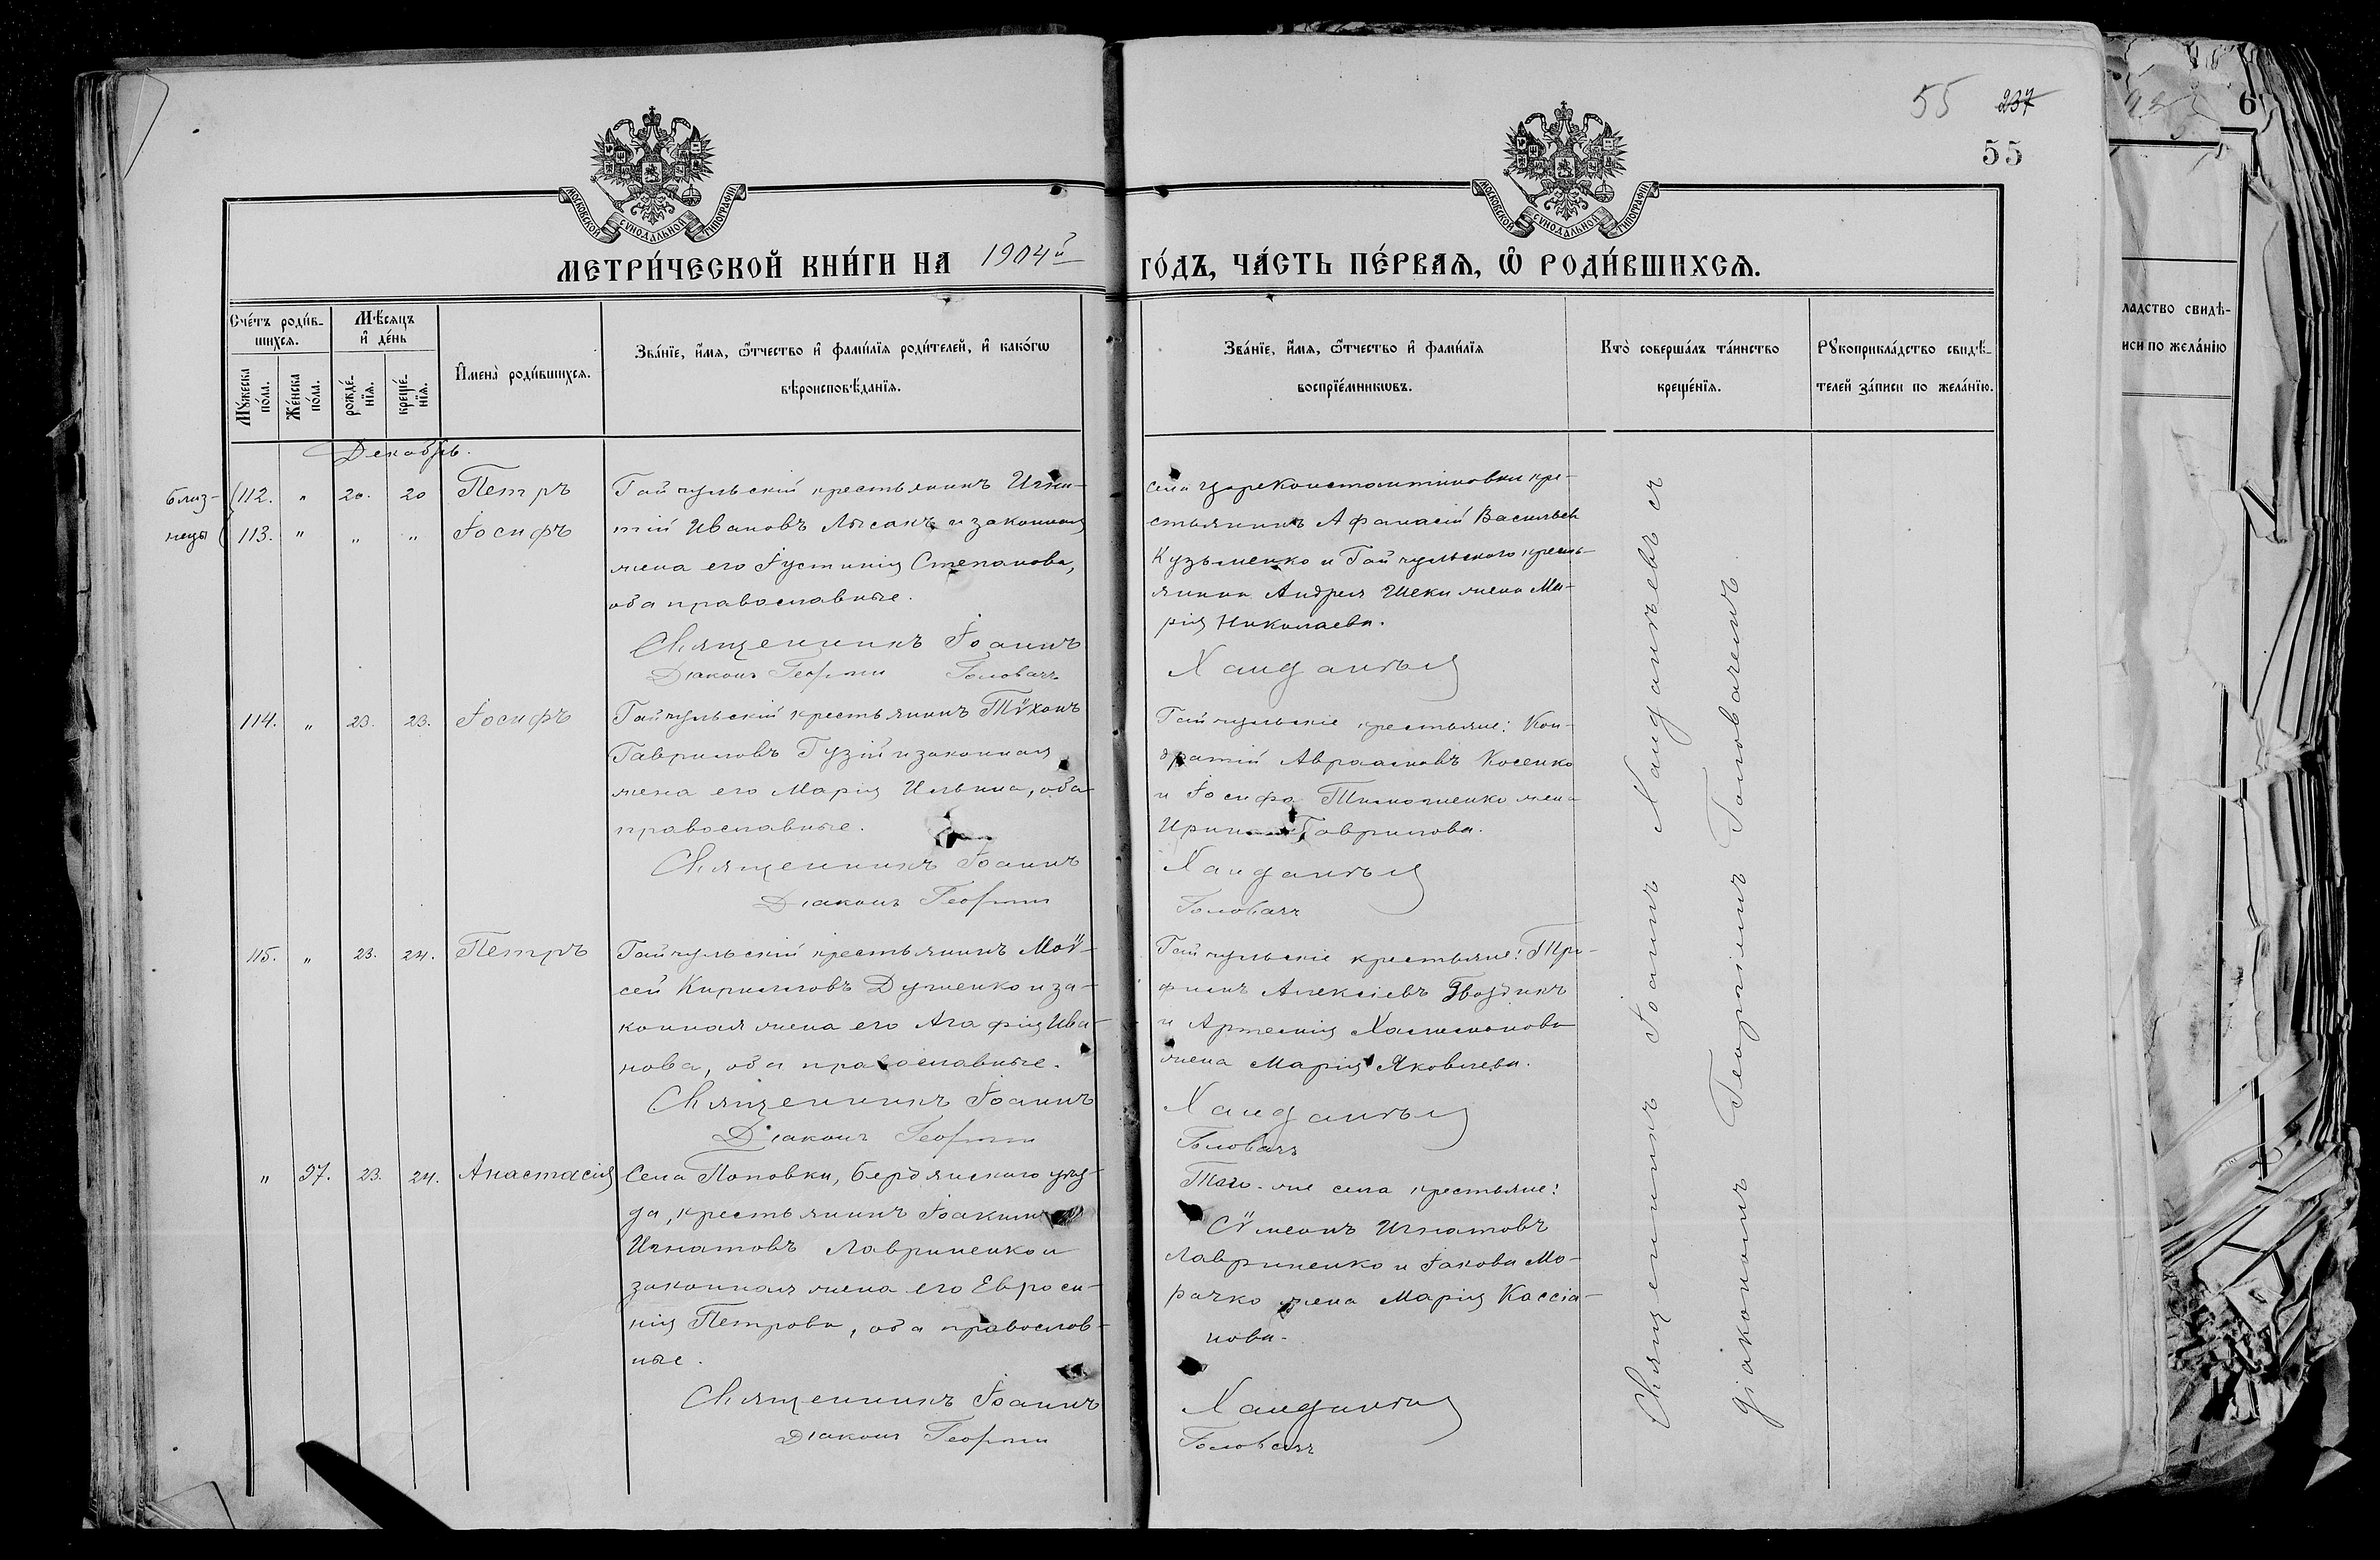 55 237
55
МОСКОВСКОЙ СѴНОДАЛЬНОЙ ТИПОГРАФІИ
МОСКОВСКОЙ СѴНОДАЛЬНОЙ ТИПОГРАФІИ
МЕТРИ́ЧЕСКОЙ КНИ́ГИ НА 1904й ГО́ДЪ, ЧА́СТЬ ПЕ́РВАѦ, Ѽ РОДИ́ВШИХСѦ.
Сче́тъ роди́в-
шихся.
Мꙋ́жеска
по́ла.
Же́нска
по́ла.
Мѣ́сяцъ
и҆ де́нь
рожде́-
нїѧ.
креще́-
нїѧ.
И҆мена̀ роди́вшихсѧ.
Зва́нїе, и҆́мѧ, ѻ҆́тчество и҆ фами́лїѧ роди́телей, и҆ како́гѡ
вѣроисповѣ́данїѧ.
Зва́нїе, и҆́мѧ, ѻ҆́тчество и҆ фами́лїѧ
воспрїе́мникѡвъ.
Кто̀ соверша́лъ та́инство
креще́нїѧ.
Рꙋкоприкла́дство свидѣ́-
телей за́писи по жела́нїю.
Декабрь.
близ- 112. " 20. 20 Петръ
нецы 113. " " " Іосифъ
Гайчульскій крестьянинъ Игна-
тій Ивановъ Лысакъ и законная
жена его Іустинія Степанова,
оба православные.
Священникъ Іоаннъ
Діаконъ Георгій Головачъ
села Цареконстантиновки кре-
стьянинъ Афанасій Васильевъ
Кузьменко и Гайчульского кресть-
янина Андрея Шеки жена Ма-
рія Николаева.
Хандантьея
114. " 23. 23. Іосифъ
Гайчульскій крестьянинъ Тѵхонъ
Гавриловъ Гузій и законная
жена его Марія Ильина, оба
православные.
Священникъ Іоаннъ
Діаконъ Георгій
Гайчульскіе крестьяне: Кон-
дратій Авраамовъ Косенко
и Іосифа Тимошенко жена
Ирина Гаврилова.
Головачъ
115. " 23. 24. Петръ
Гайчульскій крестьянинъ Моѵ-
сей Кирилловъ Душенко и за-
конная жена его Агафія Ива-
нова, оба православные.
Священникъ Іоаннъ
Діаконъ Георгій
Гайчульскіе крестьяне: Тро-
фимъ Алексіевъ Гвоздикъ
и Артемія
жена Марія Яковлева.
Головачъ
" 97. 23. 24. Анастасія
Села Поповки, Бердянского уѣз-
да, крестьянинъ Іоакимъ
Игнатовъ Лавриненко и
законная жена его Евроси-
нія Петрова, оба православ-
ные.
Священникъ Іоаннъ
Діаконъ Георгій
Того-же села крестьяне:
Сѵмеонъ Игнатовъ
Лавриненко и Іакова Мо-
рачко жена Марія Кассіа-
нова.
Головачъ
Священникъ Іоаннъ
діакономъ Георгіемъ Головачемъ